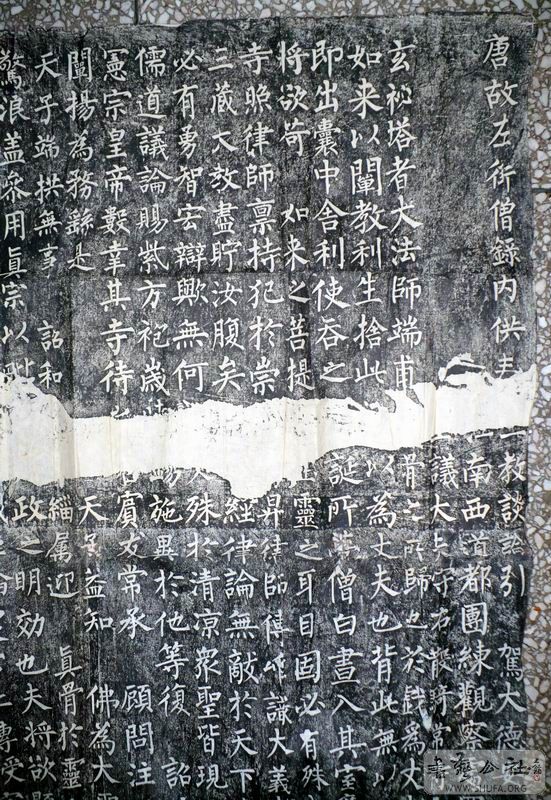 唐故左街僧錄內供 教談論引 駕大德
南西道都團練觀察
議大夫守右散騎常
玄祕塔者大法師端甫 骨之所歸也於戲為丈
如来以闡教利生捨此 以為丈夫也背此無以
即出囊中舍利使吞之 誕所夢僧白晝入其室
將欲荷 如来之菩提 靈之耳目固必有殊
寺照律師稟持犯於崇 昇律師傳唯識大義
三藏大教盡貯汝腹矣 經律論無敵於天下
必有勇智宏辯歟無何 殊於清涼眾聖皆現
儒道議論賜紫方袍歲 施異於他等復 詔
憲宗皇帝數幸其寺待 賓友常承 顧問注
闡揚為務繇是 天 益知 佛為大
天子端拱無事 詔和 緇屬迎 真骨於靈
驚浪蓋參用真宗以 政之明効也夫將欲
WWW.SHUFA.ORG